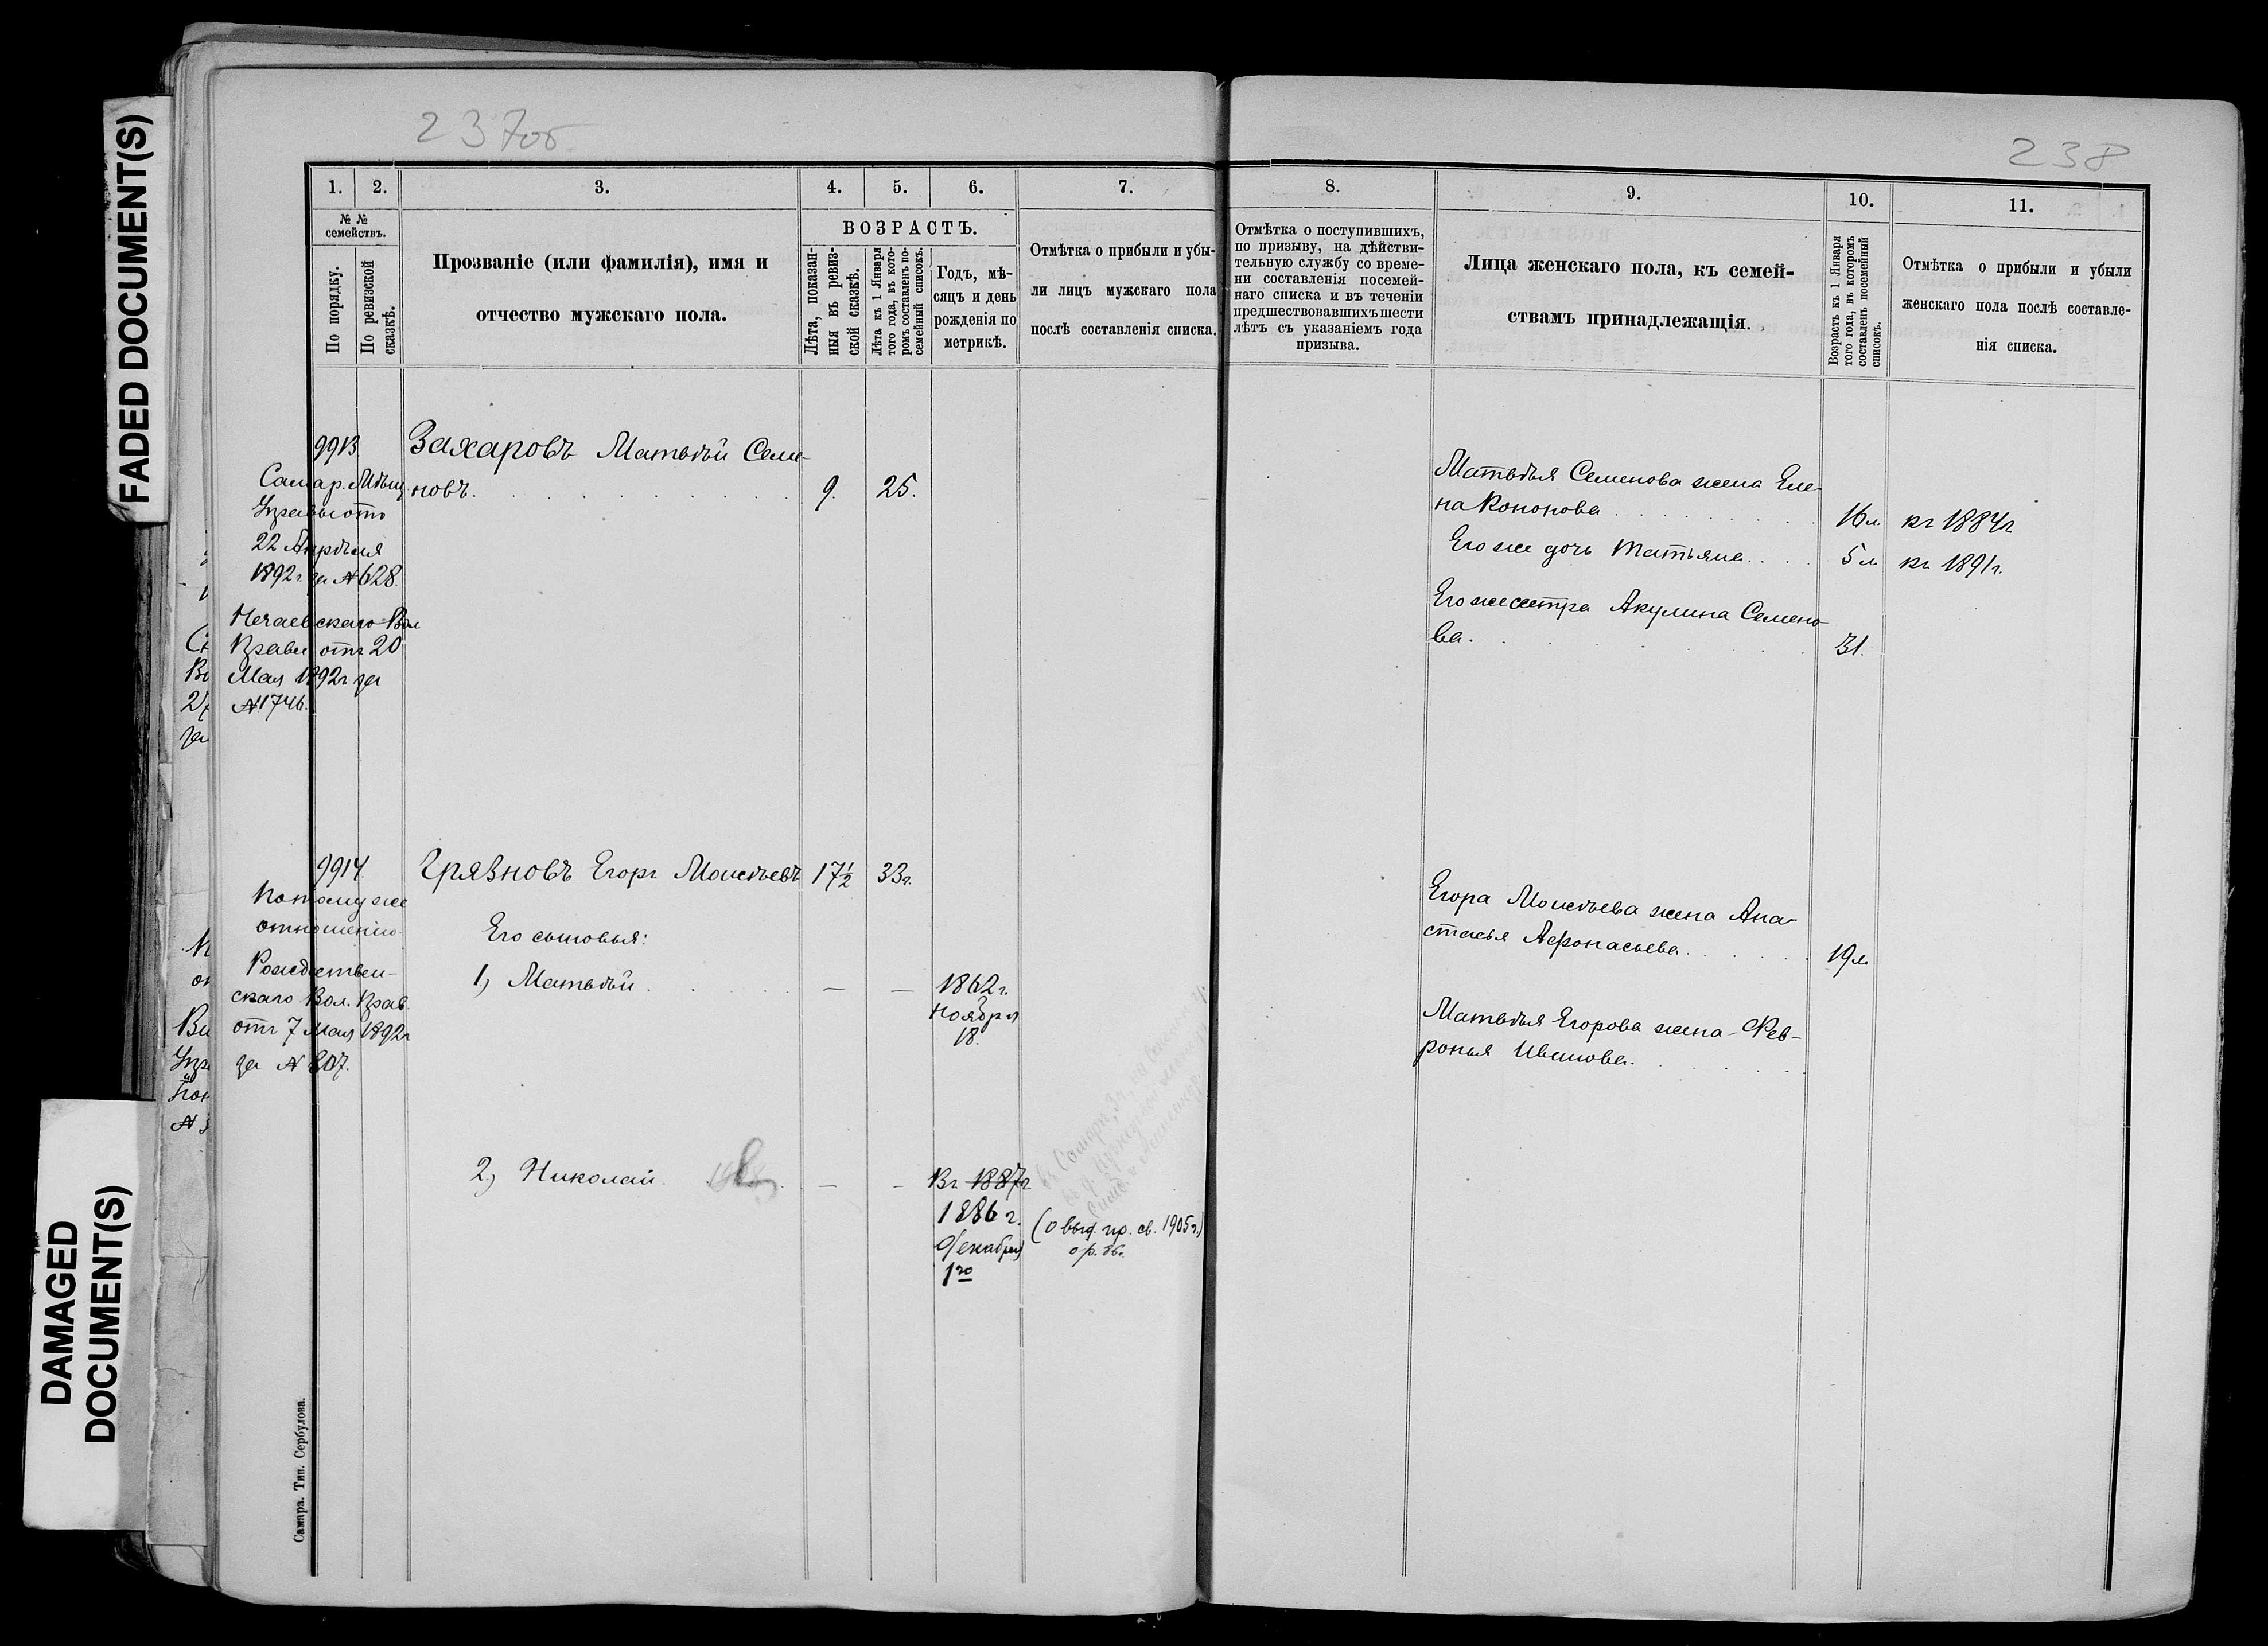 FADED DOCUMENT(S)
DAMAGED
DOCUMENT(S)
237об
238
1.
2.
3.
4.
5.
6.
7.
8.
9.
10.
11.
№ №
семействъ.
По порядку.
По ревизской
сказкѣ.
Прозваніе (или фамилія), имя и
отчество мужскаго пола.
ВОЗРАСТЪ.
Лѣта, показан-
ныя въ ревиз-
ской сказкѣ.
Лѣта къ 1 Января
того года, въ кото-
ромъ составленъ по-
семейный списокъ.
Годъ, мѣ-
сяцъ и день
рожденія по
метрикѣ.
Отмѣтка о прибыли и убы-
ли лицъ мужскаго пола
послѣ составленія списка.
Отмѣтка о поступившихъ,
по призыву, на дѣйстви-
тельную службу со време-
ни составленія посемей-
наго списка и въ теченіи
предшествовавшихъ шести
лѣтъ съ указаніемъ года
призыва.
Лица женскаго пола, къ семей-
ствамъ принадлежащія.
Возрастъ къ 1 Января
того года, въ которомъ
составленъ посемейный
списокъ.
Отмѣтка о прибыли и убыли
женскаго пола послѣ составле-
нія списка.
9913.
Самар. Мѣщ.
Управы отъ
22 Апрѣля
1892г. за № 628.
Нечаевскаго Вол
Правл отъ 20
Мая 1892г за
№ 1746.
Захаровъ Матвѣй Семе-
новъ. 9. 25.
Матвѣя Семенова жена Еле-
на Кононова 16л. къ 1884г
Его же дочь Татьяна 5л къ 1891г.
Его же сестра Акулина Семено
ва. 31.
9914.
По тому же
отношенію
Рождествен-
скаго Вол. Прав.
отъ 7 Мая 1892г
за № 807.
Грязновъ Егоръ Моисѣевъ 17½ 33г.
Его сыновья:
1) Матвѣй. — — 1862г.
Ноября
18.
2) Николай. — — Въ 1887г
1886 г.
Декабря
1го
(о выд. пр. св. 1905г.)
Егора Моисѣева жена Ана-
стасья Афонасьева. 19л
Матвѣя Егорова жена Фев-
ронья Иванова.
Самара. Тип. Сербулова.